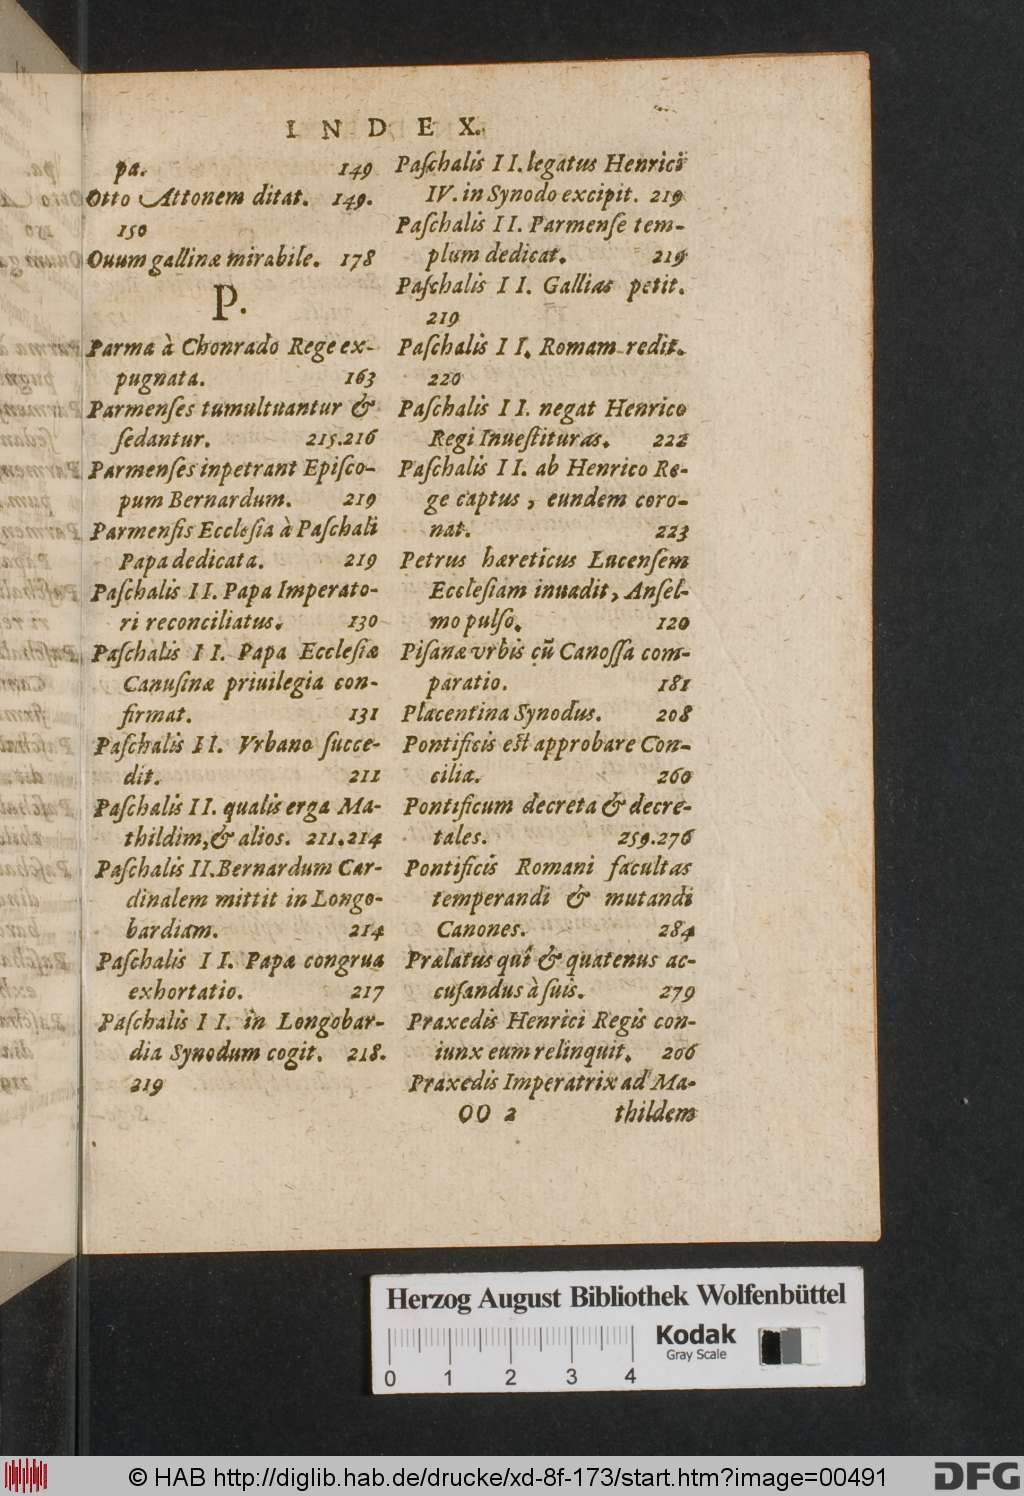 INDEX.
pa. 149
Otto Attonem ditat. 149.
150
Ouum gallinæ mirabile. 178
P.
Parma à Chonrado Rege ex-
pugnata. 163
Parmenſes tumultuantur &
ſedantur. 215.216
Parmenſes inpetrant Epiſco-
pum Bernardum. 219
Parmenſis Eccleſia à Paſchali
Papa dedicata. 219
Paſchalis II. Papa Imperato-
ri reconciliatus. 130
Paſchalis II. Papa Eccleſiæ
Canuſinæ priuilegia con-
firmat. 131
Paſchalis II. Vrbano ſucce-
dit. 211
Paſchalis II. qualis erga Ma-
thildim, & alios. 211.214
Paſchalis II. Bernardum Car-
dinalem mittit in Longo-
bardiam. 214
Paſchalis II. Papa congrua
exhortatio. 217
Paſchalis II. in Longobar-
dia Synodum cogit. 218.
219
Paſchalis II. legatus Henrici
IV. in Synodo excipit. 219
Paſchalis II. Parmenſe tem-
plum dedicat. 219
Paſchalis II. Gallias petit.
219
Paſchalis II. Romam redit.
220
Paſchalis II. negat Henrico
Regi Inueſtituras. 222
Paſchalis II. ab Henrico Re-
ge captus, eundem coro-
nat. 223
Petrus hæreticus Lucenſem
Eccleſiam inuadit, Anſel-
mo pulſo. 120
Piſanæ vrbis cũ Canoſſa com-
paratio. 181
Placentina Synodus. 208
Pontificis eſt approbare Con-
cilia. 260
Pontificum decreta & decre-
tales. 259.276
Pontificis Romani facultas
temperandi & mutandi
Canones. 284
Prælatus quî & quatenus ac-
cuſandus à ſuis. 279
Praxedis Henrici Regis con-
iunx eum relinquit. 206
Praxedis Imperatrix ad Ma-
OO 2 thildem
Herzog August Bibliothek Wolfenbüttel
Kodak
Gray Scale
0 1 2 3 4
© HAB http://diglib.hab.de/drucke/xd-8f-173/start.htm?image=00491
DFG